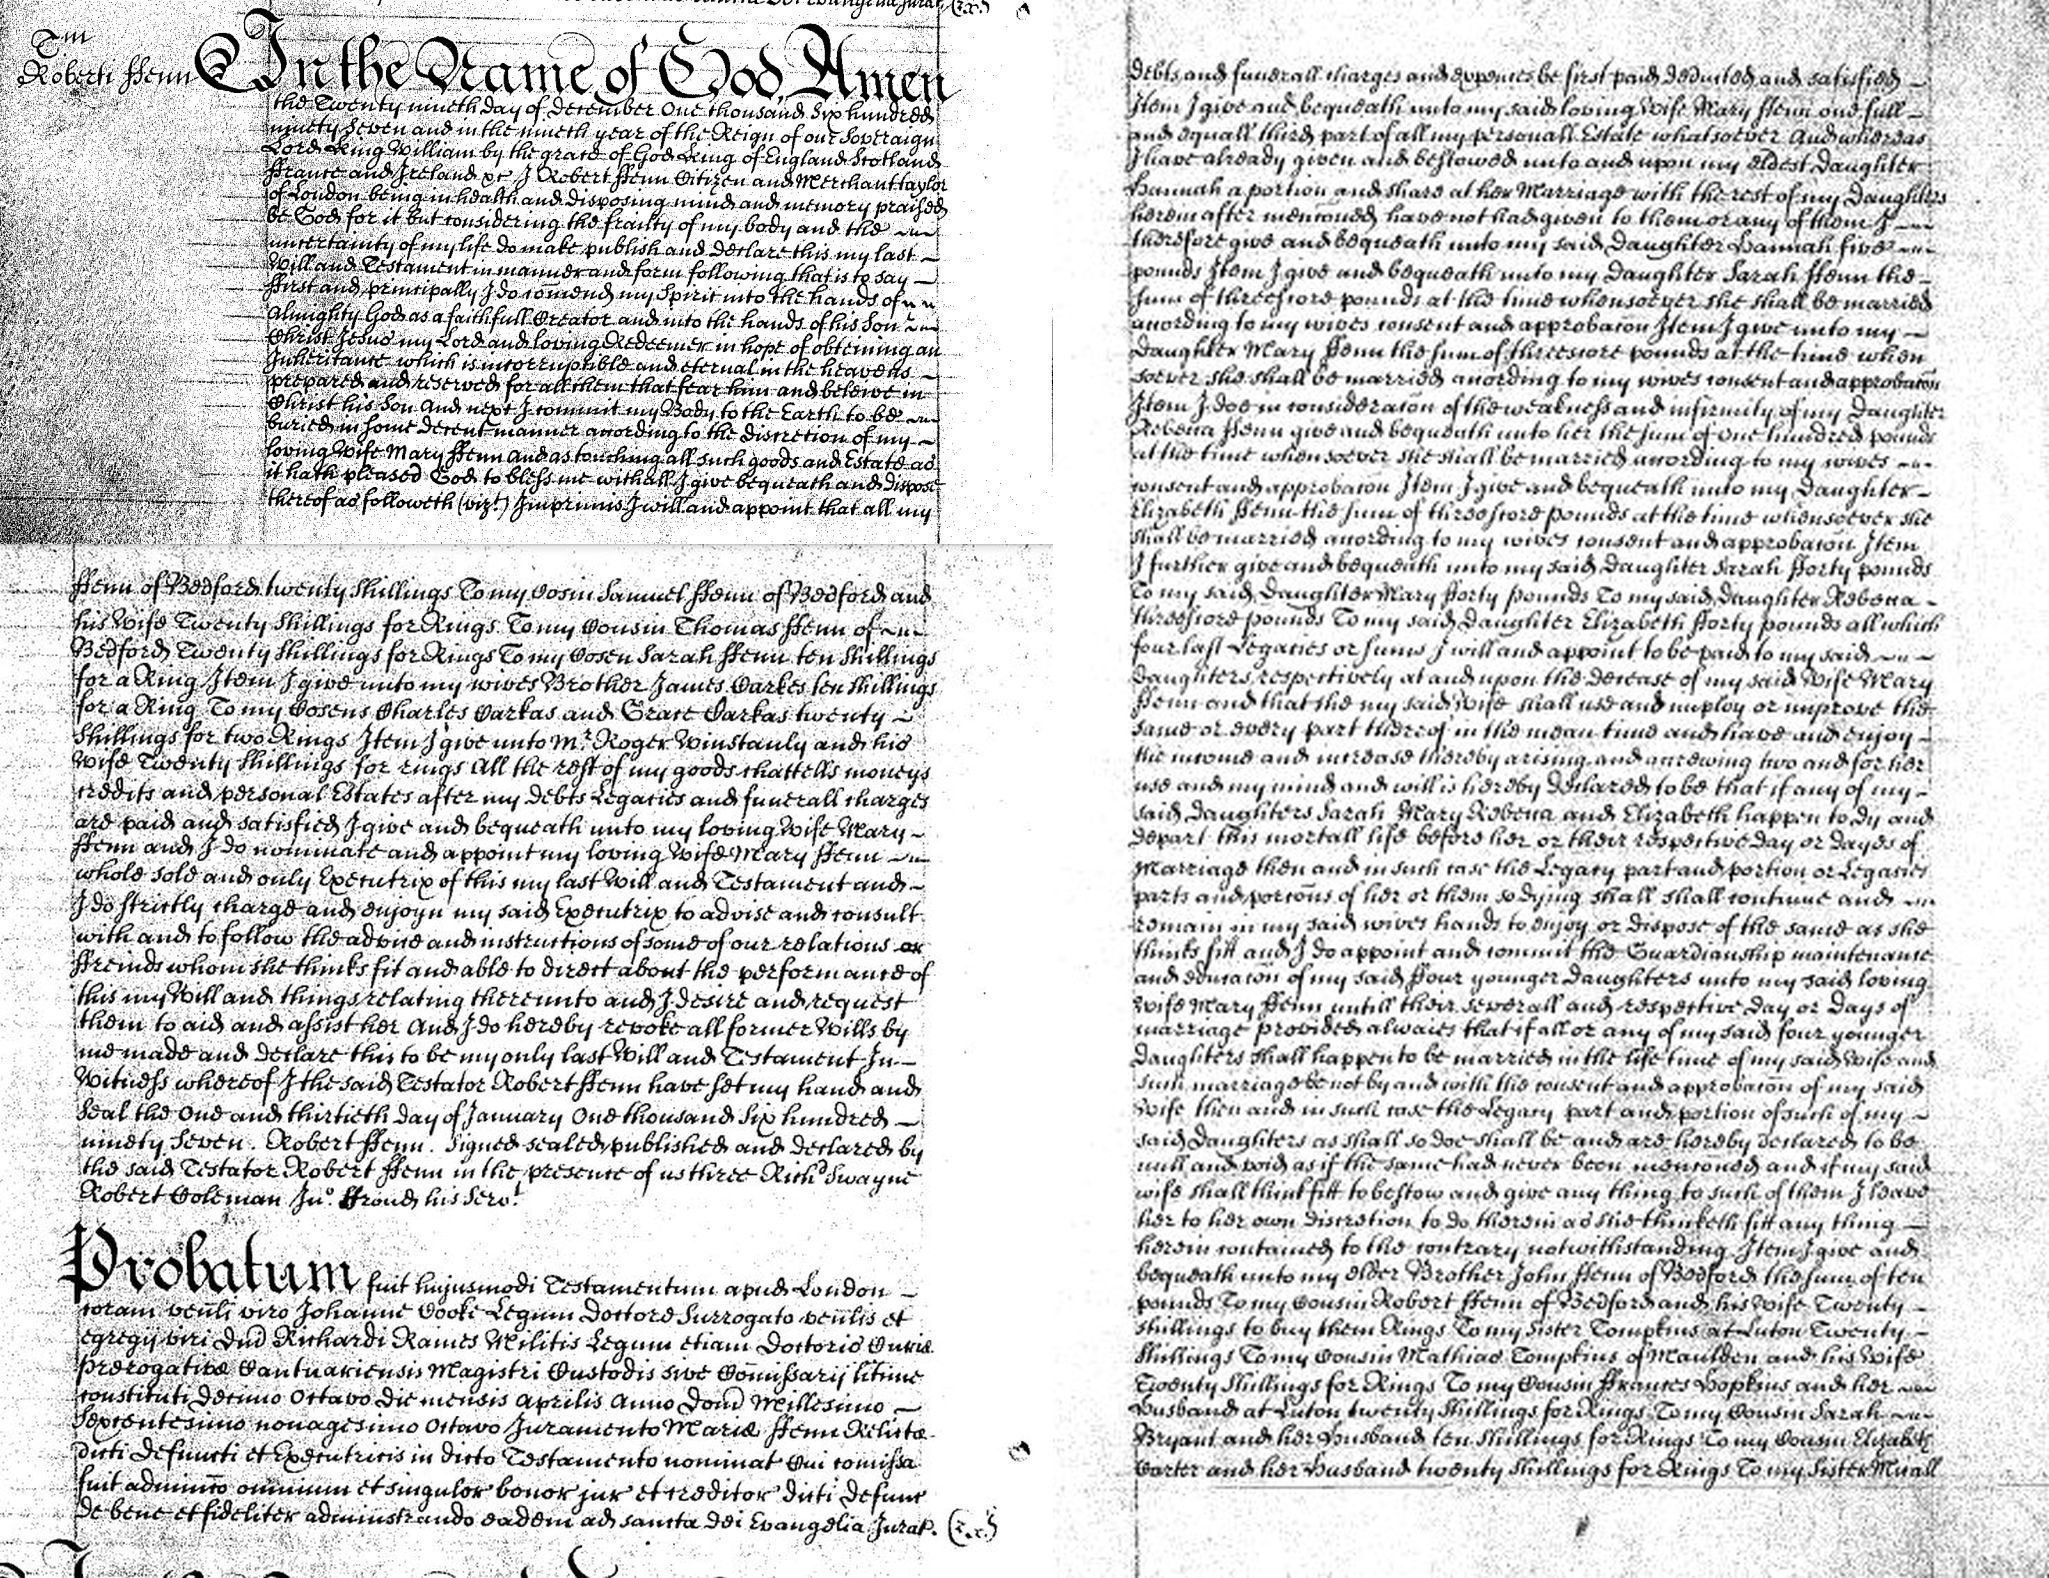 Tm
Roberti ffenn
In the Name of God, Amen
the Twenty nineth day of December One thousand Six hundred
ninety Seven and in the nineth year of the Reign of our Soveraign
Lord King William by the grace of God King of England Scotland
ffrance and Ireland &c I Robert ffenn Citizen and Merchanttaylor
of London being in health and disposing mind and memory praised
be God for it but considering the frailty of my body and the
uncertainty of my life do make publish and declare this my last
Will and Testament in manner and form following that is to say
ffirst and principally I do com̄end my Spirit into the hands of
almighty God as a faithfull Creator and into the hands of his Son
Christ Jesus my Lord and loving Redeemer in hope of obteining an
Inheritance which is incorruptible and eternal in the heavens
prepared and reserved for all them that fear him and beleive in
Christ his Son And next I commit my Body to the Earth to be
buried in some decent manner according to the discretion of my
loving Wife Mary ffenn and as touching all such goods and Estate as
it hath pleased God to bless me withall I give bequeath and dispose
thereof as followeth (vizt.) Imprimis I will and appoint that all my
debts and funerall charges and expences be first paid deducted and satisfied
Item I give and bequeath unto my said loving Wife Mary ffenn one full
and equall third part of all my personall Estate whatsoever And whereas
I have already given and bestowed unto and upon my eldest Daughter
Hannah a portion and share at her Marriage with the rest of my Daughters
herein after mentioned have not had given to them or any of them I
therefore give and bequeath unto my said Daughter Hannah five
pounds Item I give and bequeath unto my Daughter Sarah ffenn the
sum of threescore pounds at the time whensoever she shall be married
according to my wives consent and approbacon Item I give unto my
Daughter Mary ffenn the sum of threescore pounds at the time when
soever she shall be married according to my wives consent and approbacōn
Item I doe in consideracōn of the weakness and infirmity of my Daughter
Rebecca ffenn give and bequeath unto her the sum of One hundred pounds
at the time whensoever she shall be married according to my wives
consent and approbacon Item I give and bequeath unto my Daughter
Elizabeth ffenn the sum of threescore pounds at the time whensoever she
shall be married according to my wives consent and approbacōn Item
I further give and bequeath unto my said Daughter Sarah fforty pounds
To my said Daughter Mary fforty pounds To my said Daughter Rebecca
threescore pounds To my said Daughter Elizabeth fforty pounds all which
four last Legacies or sums I will and appoint to be paid to my said
Daughters respectively at and upon the decease of my said Wife Mary
ffenn and that the my said Wife shall use and imploy or improve the
same or every part thereof in the mean time and have and enjoy
the income and increase thereby arising and accrewing two and for her
use and my mind and will is hereby declared to be that if any of my
said Daughters Sarah Mary Rebecca and Elizabeth happen to dy and
depart this mortall life before her or their respective day or dayes of
Marriage then and in such case the Legacy part and portion or Legacies
parts and porcōns of her or them so dying shall shall continue and
remain in my said wives hands to enjoy or dispose of the same as she
thinks fitt and I do appoint and commit the Guardianship maintenance
and educacōn of my said ffour younger Daughters unto my said loving
Wife Mary ffenn untill their severall and respective day or Days of
marriage provided alwaies that if all or any of my said four younger
Daughters shall happen to be married in the life time of my said Wife and
such marriage be not by and with the consent and approbacōn of my said
Wife then and in such case the Legacy part and portion of such of my
said Daughters as shall so doe shall be and are hereby declared to be
null and void as if the same had never been mencōned and if my said
wife shall think fitt to bestow and give any thing to such of them I leave
her to her own discretion to do therein as she thinketh fitt any thing
herein contained to the contrary notwithstanding Item I give and
bequeath unto my elder Brother John ffenn of Bedford the sum of ten
pounds To my Cousin Robert ffenn of Bedford and his Wife Twenty
shillings to buy them Rings To my Sister Tompkins at Luton Twenty
Shillings To my Cousin Mathias Tompkins of Maulden and his Wife
Twenty Shillings for Rings To my Cousin ffrances Hopkins and her
Husband at Luton twenty Shillings for Rings To my Cousin Sarah
Bryant and her Husband ten Shillings for Rings To my Cousin Elizabeth
Carter and her Husband twenty Shillings for Rings To my Sister
ffenn of Bedford twenty Shillings To my Cosin Samuel ffenn of Bedford and
his Wife Twenty Shillings for Rings To my Cousin Thomas ffenn of
Bedford Twenty Shillings for Rings To my Cosen Sarah ffenn ten Shillings
for a Ring Item I give unto my wives Brother James Carkes ten Shillings
for a Ring To my Cosens Charles Carkas and Grace Carkas twenty
Shillings for two Rings Item I give unto Mr. Roger Winstanly and his
Wife Twenty Shillings for rings All the rest of my goods chattells moneys
credits and personal Estates after my debts Legacies and funerall charges
are paid and satisfied I give and bequeath unto my loving Wife Mary
ffenn and I do nominate and appoint my loving Wife Mary ffenn
whole sole and only Executrix of this my last Will and Testament and
I do strictly charge and enjoyn my said Executrix to advise and consult
with and to follow the advice and instructions of some of our relations or
ffreinds whom she thinks fit and able to direct about the performance of
this my Will and things relating thereunto and I desire and request
them to aid and assist her And I do hereby revoke all former Wills by
me made and declare this to be my only last Will and Testament In
Witness whereof I the said Testator Robert ffenn have set my hand and
Seal the One and thirtieth day of January One thousand Six hundred
ninety Seven. Robert ffenn. Signed sealed published and declared by
the said Testator Robert ffenn in the presence of us three Richd Swayne
Robert Coleman Jno. Stroud his Servt.
Probatum fuit hujusmodi Testamentum apud London
coram venl̄i viro Johanne Cooke Legum Doctore Surrogato venl̄is et
egregij viri Dn̄i Richardi Raines Militis Legum etiam Doctoris Curiæ
Prerogativæ Cantuariensis Magistri Custodis sive Com̄issarij l̄itime
constituti Decimo Octavo die mensis Aprilis Anno Don̄i Millesimo
Sexcentesimo nonagesimo Octavo Juramento Mariæ ffenn Relictæ
dicti defuncti et Executricis in dicto Testamento nominat Cui comissa
fuit admin̄io omnium et singulor bonor jur et creditor dicti defunc
de bene et fideliter administrando eadem ad sancta dei Evangelia Jurat.